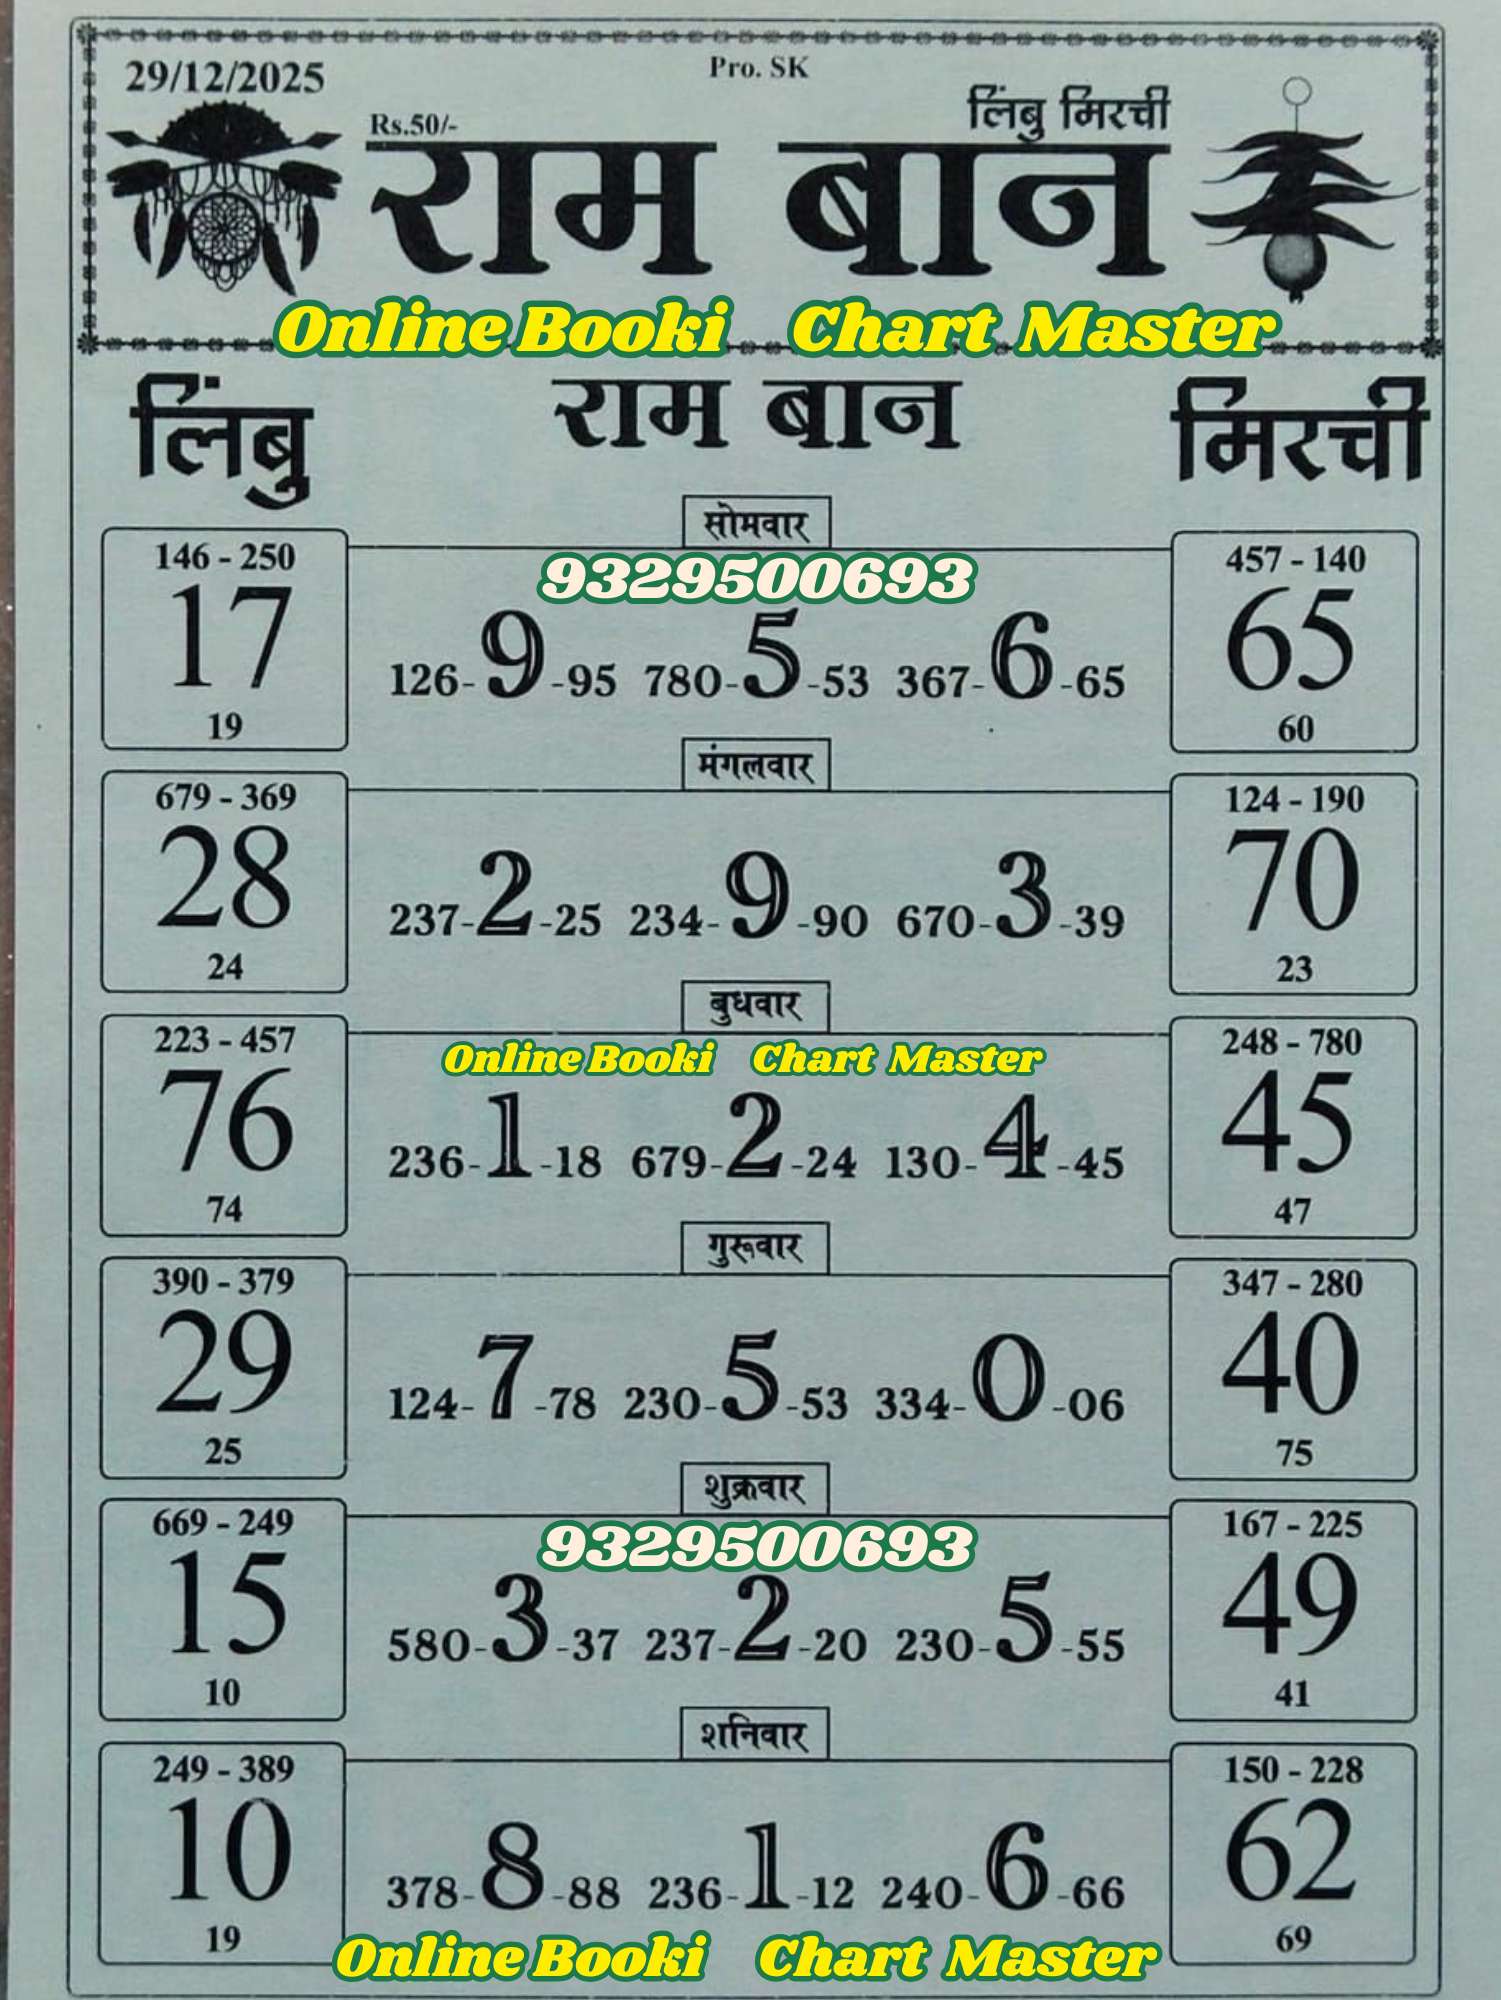 29/12/2025
Pro. SK
Rs.50/-
लिंबु मिरची
राम बान
Online Booki Chart Master
लिंबु
राम बान
मिरची
सोमवार
146 - 250
17
19
9329500693
126-9-95 780-5-53 367-6-65
457 - 140
65
60
मंगलवार
679 - 369
28
24
237-2-25 234-9-90 670-3-39
124 - 190
70
23
बुधवार
223 - 457
76
74
Online Booki Chart Master
236-1-18 679-2-24 130-4-45
248 - 780
45
47
गुरूवार
390 - 379
29
25
124-7-78 230-5-53 334-0-06
347 - 280
40
75
शुक्रवार
669 - 249
15
10
9329500693
580-3-37 237-2-20 230-5-55
167 - 225
49
41
शनिवार
249 - 389
10
19
378-8-88 236-1-12 240-6-66
150 - 228
62
69
Online Booki Chart Master